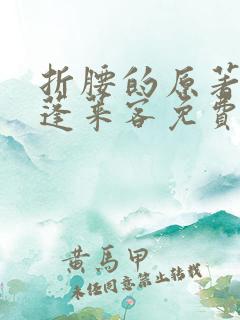 折腰的原著
蓬莱客免費
黄馬甲
未经同意禁止转载